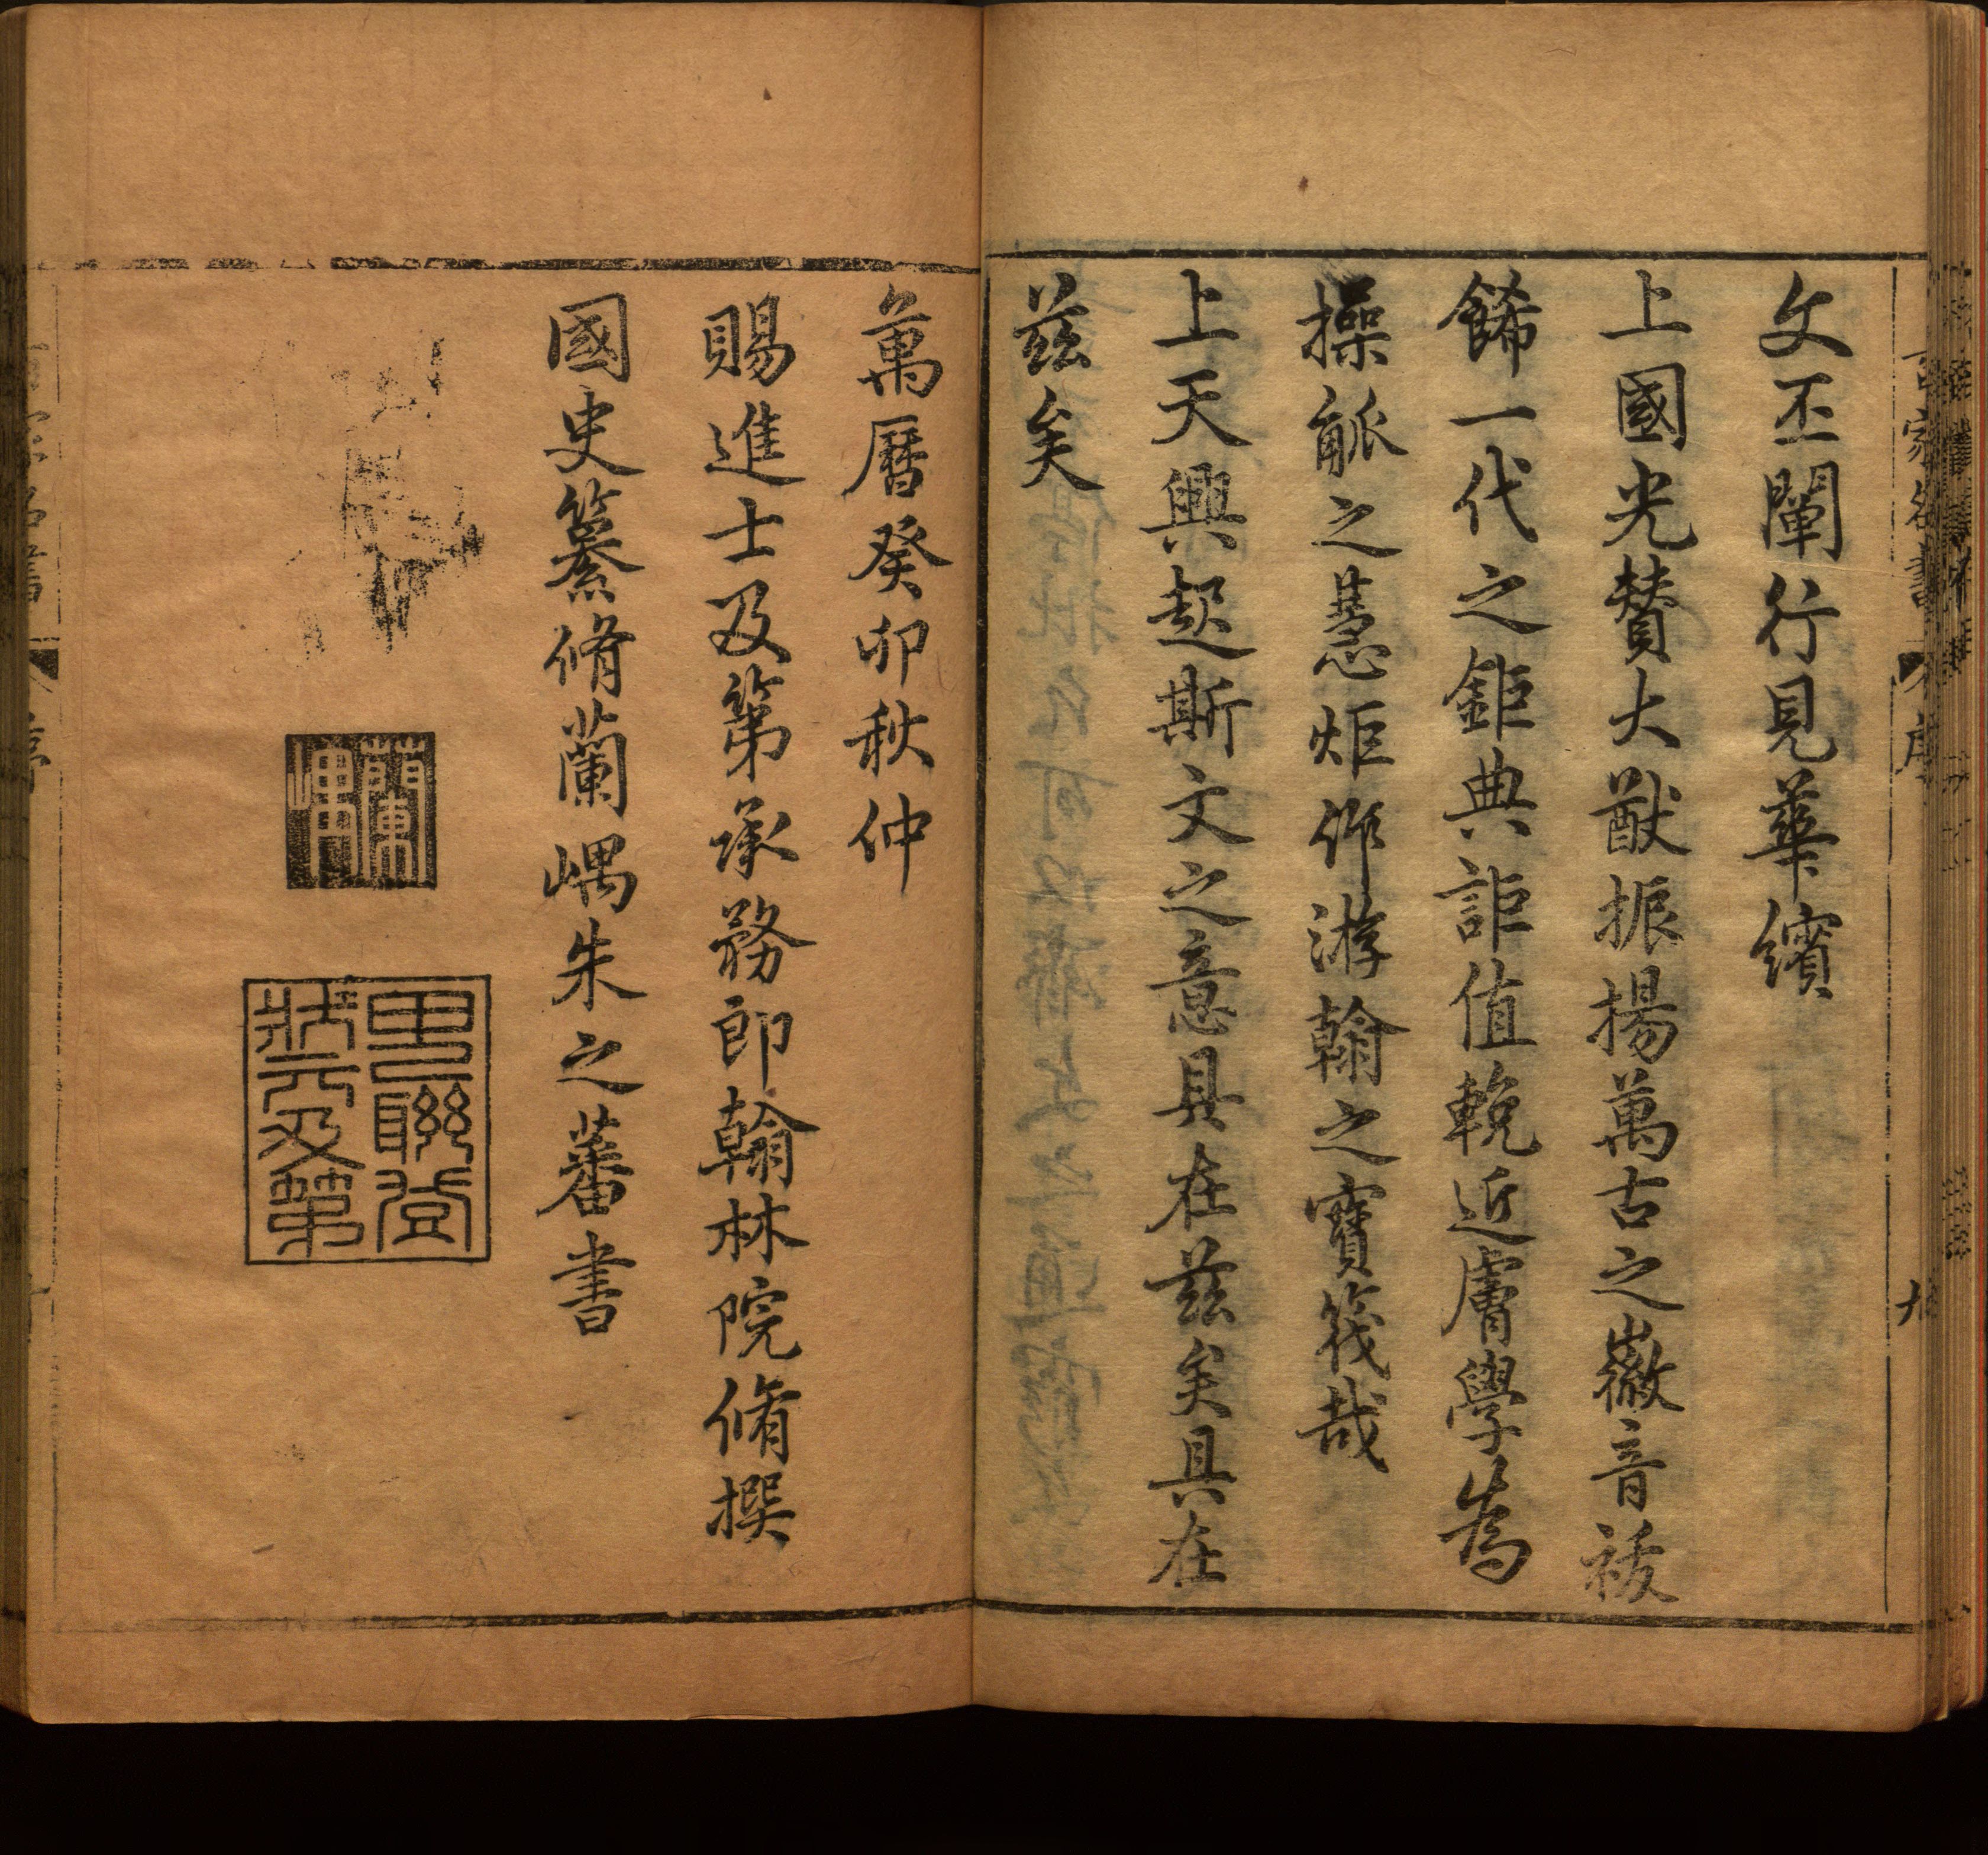 文丕闡行見華繽
上國光贊大猷振揚萬古之徽音祓
餙一代之鉅典詎值輓近膚學為
操觚之慧炬作游翰之寶筏哉
上天興起斯文之意具在茲矣具在
茲矣
萬曆癸卯秋仲
賜進士及第承務郎翰林院脩撰
國史纂脩蘭嵎朱之蕃書
蘭嵎
聯登
狀元及第
百家名書
序
九